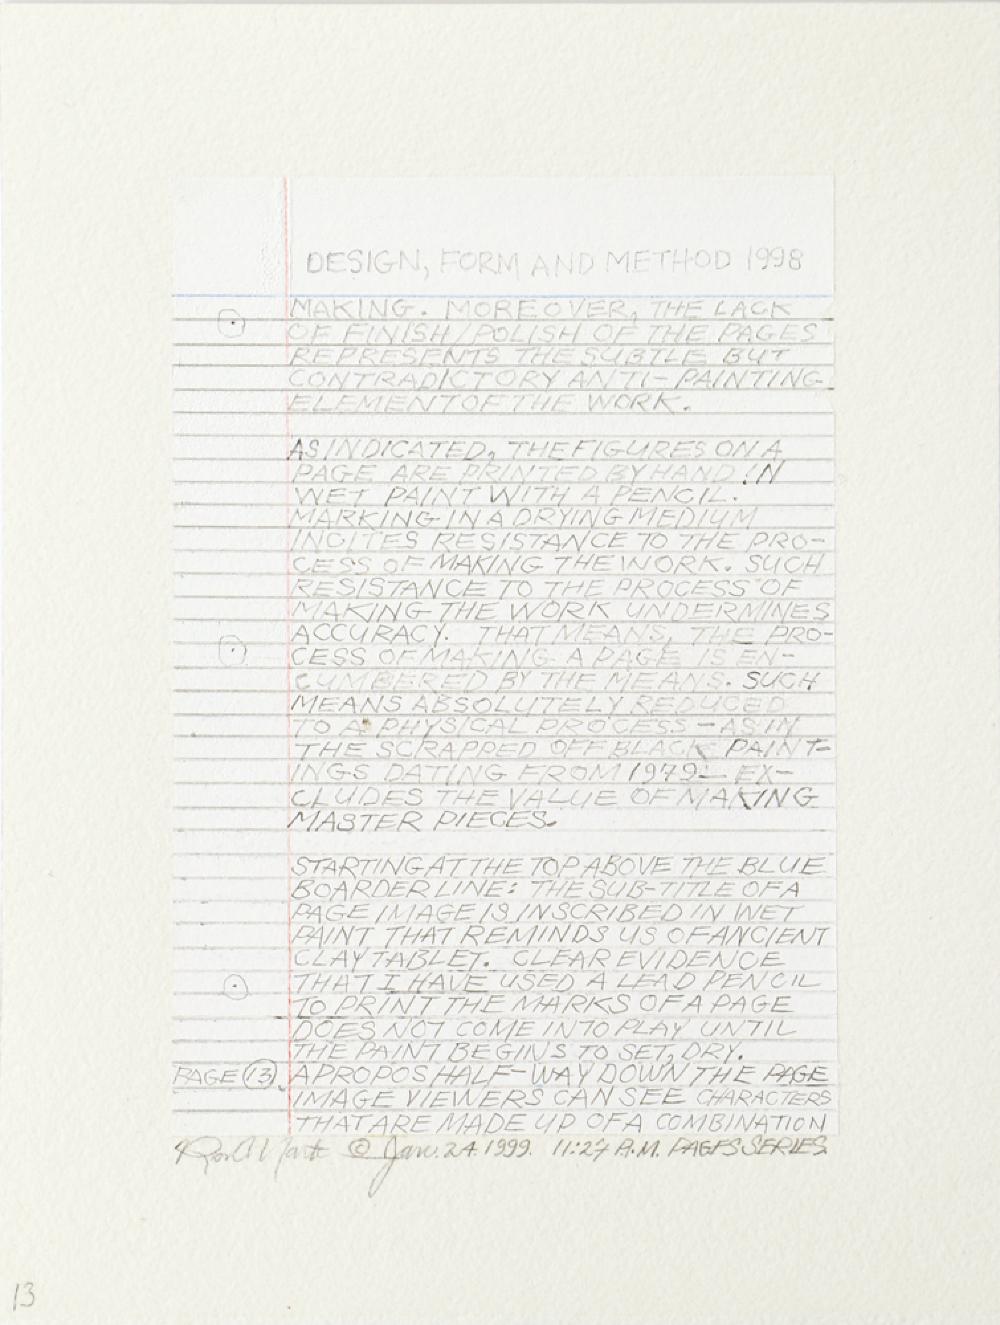 DESIGN, FORM AND METHOD 1998
MAKING. MOREOVER, THE LACK
OF FINISH/POLISH OF THE PAGES
REPRESENTS THE SUBTLE BUT
CONTRADICTORY ANTI-PAINTING
ELEMENT OF THE WORK.
AS INDICATED, THE FIGURES ON A
PAGE ARE PRINTED BY HAND IN
WET PAINT WITH A PENCIL.
MARKING IN A DRYING MEDIUM
INCITES RESISTANCE TO THE PRO-
CESS OF MAKING THE WORK. SUCH
RESISTANCE TO THE PROCESS OF
MAKING THE WORK UNDERMINES
ACCURACY. THAT MEANS, THE PRO-
CESS OF MAKING A PAGE IS EN-
CUMBERED BY THE MEANS. SUCH
MEANS ABSOLUTELY REDUCED
TO A PHYSICAL PROCESS - AS IN
THE SCRAPPED OFF BLACK PAINT-
INGS DATING FROM 1979 - EX-
CLUDES THE VALUE OF MAKING
MASTER PIECES.
STARTING AT THE TOP ABOVE THE BLUE
BOARDER LINE: THE SUB-TITLE OF A
PAGE IMAGE IS INSCRIBED IN WET
PAINT THAT REMINDS US OF ANCIENT
CLAY TABLET. CLEAR EVIDENCE
THAT I HAVE USED A LEAD PENCIL
TO PRINT THE MARKS OF A PAGE
DOES NOT COME INTO PLAY UNTIL
THE PAINT BEGINS TO SET, DRY.
PAGE 13. APROPOS HALF-WAY DOWN THE PAGE
IMAGE VIEWERS CAN SEE CHARACTERS
THAT ARE MADE UP OF A COMBINATION
© Jan. 24. 1999. 11:27 A.M. PAGES SERIES
13